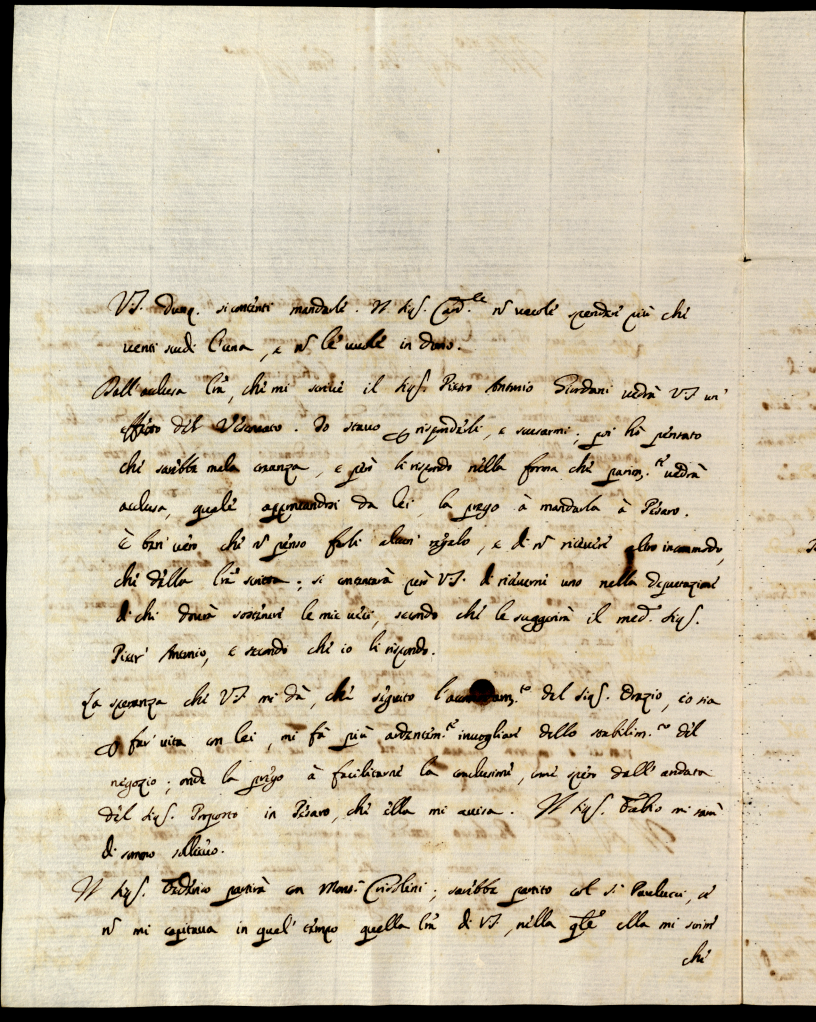 VS. dunq. si contenti mandarle. Il Sig. Card.le nō vuole spendere più che
venti scudi l'una, e nō le vuole in dono.
Dall'acclusa lrā, che mi scrive il Sig. Pietro Antonio Giordani vedrà VS un'
effetto del . Io stavo p rispondere, e scusarmi; poi hò pensato
che sarebbe mala creanza, e però li rispondo nella forma che parim.te vedrà
acclusa, quale approvandosi da lei, la prego à mandarla à Pesaro.
È ben vero che nō penso farli alcun regalo, e di nō ricevere altro incommodo,
che della lrā scritta; si contentarà però VS. di ricevermi uno nella deputazione
di chi dovrà sostenere le mie veci, secondo che le suggerirà il med.º Sig.
Pietr' Antonio, e secondo che io li rispondo.
La speranza che VS mi dà, che seguito l' del Sig. Orazio, io sia
p far vita con lei, mi fà più ardentem.te invogliare dello stabilim.to del
negozio; onde la prego à facilitarne la conclusione, come spero dall'andata
del Sig. Proposto in Pesaro, che ella mi avisa. Il Sig. Fabio mi sarà
di sommo sollievo.
Il Sig. Federico partirà con Mons.r ; sarebbe partito col S. Paulucci, se
nō mi capitava in quel tempo quella lrā di VS, nella qle ella mi scrive
che